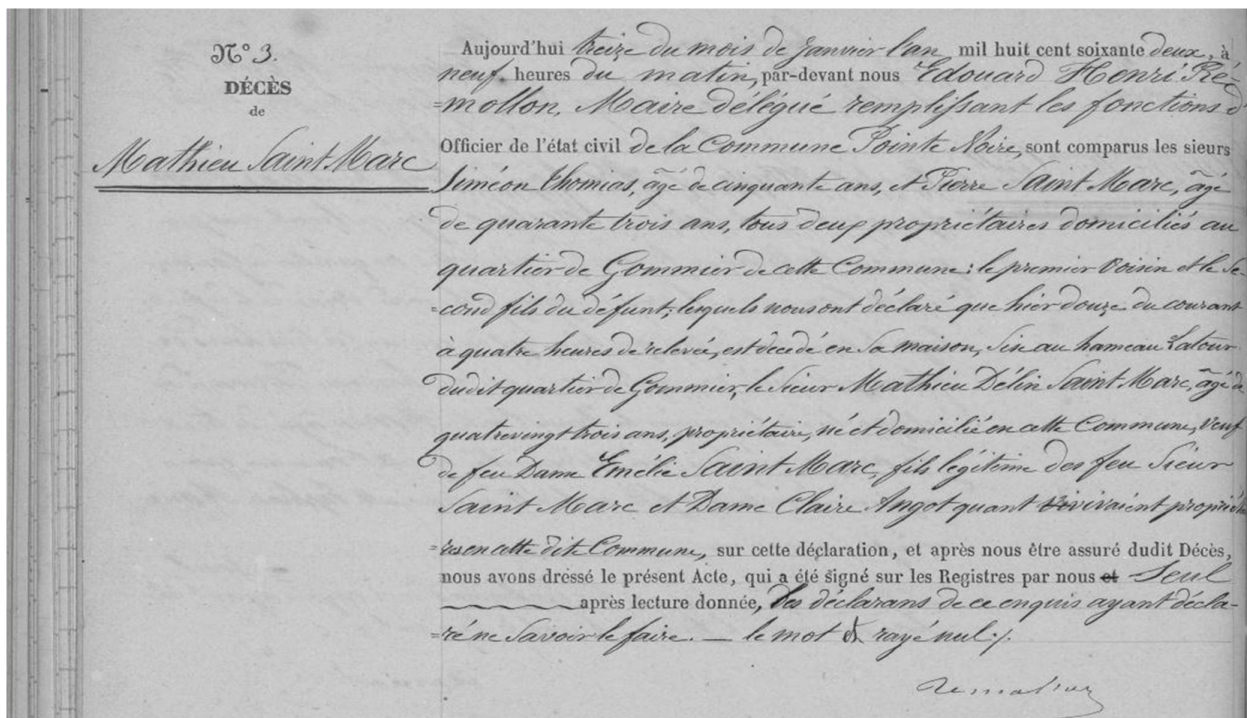 N.º 3.
DÉCÈS
de
Mathieu Saint Marc
Aujourd'hui treize du mois de Janvier l'an mil huit cent soixante deux, à
neuf heures du matin, par-devant nous Edouard Henri Ré-
=mollon, Maire délégué remplissant les fonctions d'
Officier de l'état civil de la Commune Pointe Noire, sont comparus les sieurs
Siméon Thomias, âgé de cinquante ans, et Pierre Saint Marc, âgé
de quarante trois ans, tous deux propriétaires domiciliés au
quartier de Gommier de cette Commune; le premier voisin et le se-
=cond fils du défunt; lesquels nous ont déclaré que hier douze du courant
à quatre heures de relevée, est décédé en sa maison, sise au hameau Latour
dudit quartier de Gommier, le sieur Mathieu Délin Saint Marc, âgé de
quatrevingt trois ans, propriétaire, né et domicilié en cette Commune, veuf
de feu Dame Emélie Saint Marc, fils légitime des feu Sieur
Saint Marc et Dame Claire Angot quant vivaient propriétai
=res en cette dite Commune, sur cette déclaration, et après nous être assuré dudit Décès,
nous avons dressé le présent Acte, qui a été signé sur les Registres par nous et Seul
après lecture donnée, les déclarans de ce enquis ayant décla-
=ré ne savoir le faire. — le mot et rayé nul ./.
Remollon